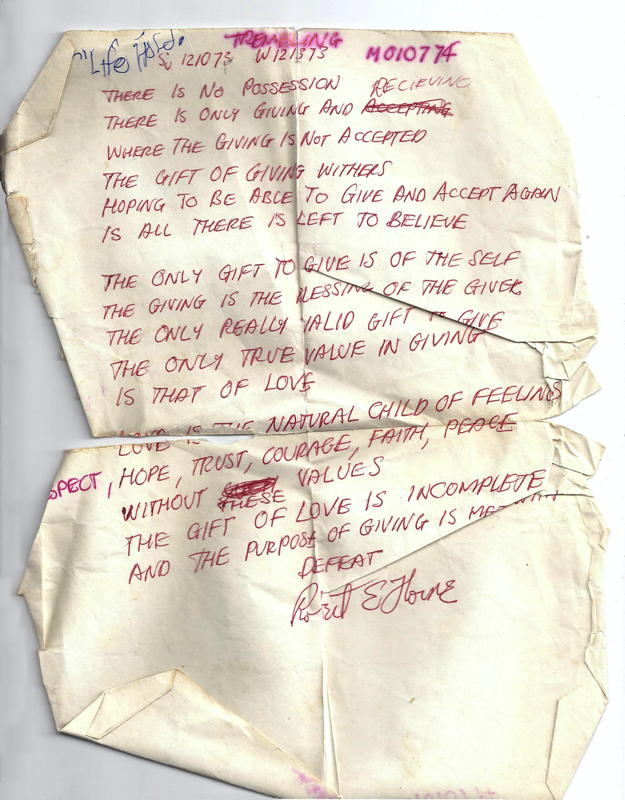 "Life
TREMBLING
Su 121073 W121373 M010774
THERE IS NO POSSESSION RECIEVING
THERE IS ONLY GIVING AND ACCEPTING
WHERE THE GIVING IS NOT ACCEPTED
THE GIFT OF GIVING WITHERS
HOPING TO BE ABLE TO GIVE AND ACCEPT AGAIN
IS ALL THERE IS LEFT TO BELIEVE
THE ONLY GIFT TO GIVE IS OF THE SELF
THE GIVING IS THE BLESSING OF THE GIVER
THE ONLY REALLY VALID GIFT TO GIVE
THE ONLY TRUE VALUE IN GIVING
IS THAT OF LOVE
LOVE IS THE NATURAL CHILD OF FEELING
SPECT, HOPE, TRUST, COURAGE, FAITH, PEACE
WITHOUT THESE VALUES
THE GIFT OF LOVE IS INCOMPLETE
AND THE PURPOSE OF GIVING IS MET WITH
DEFEAT
Robert E Horne